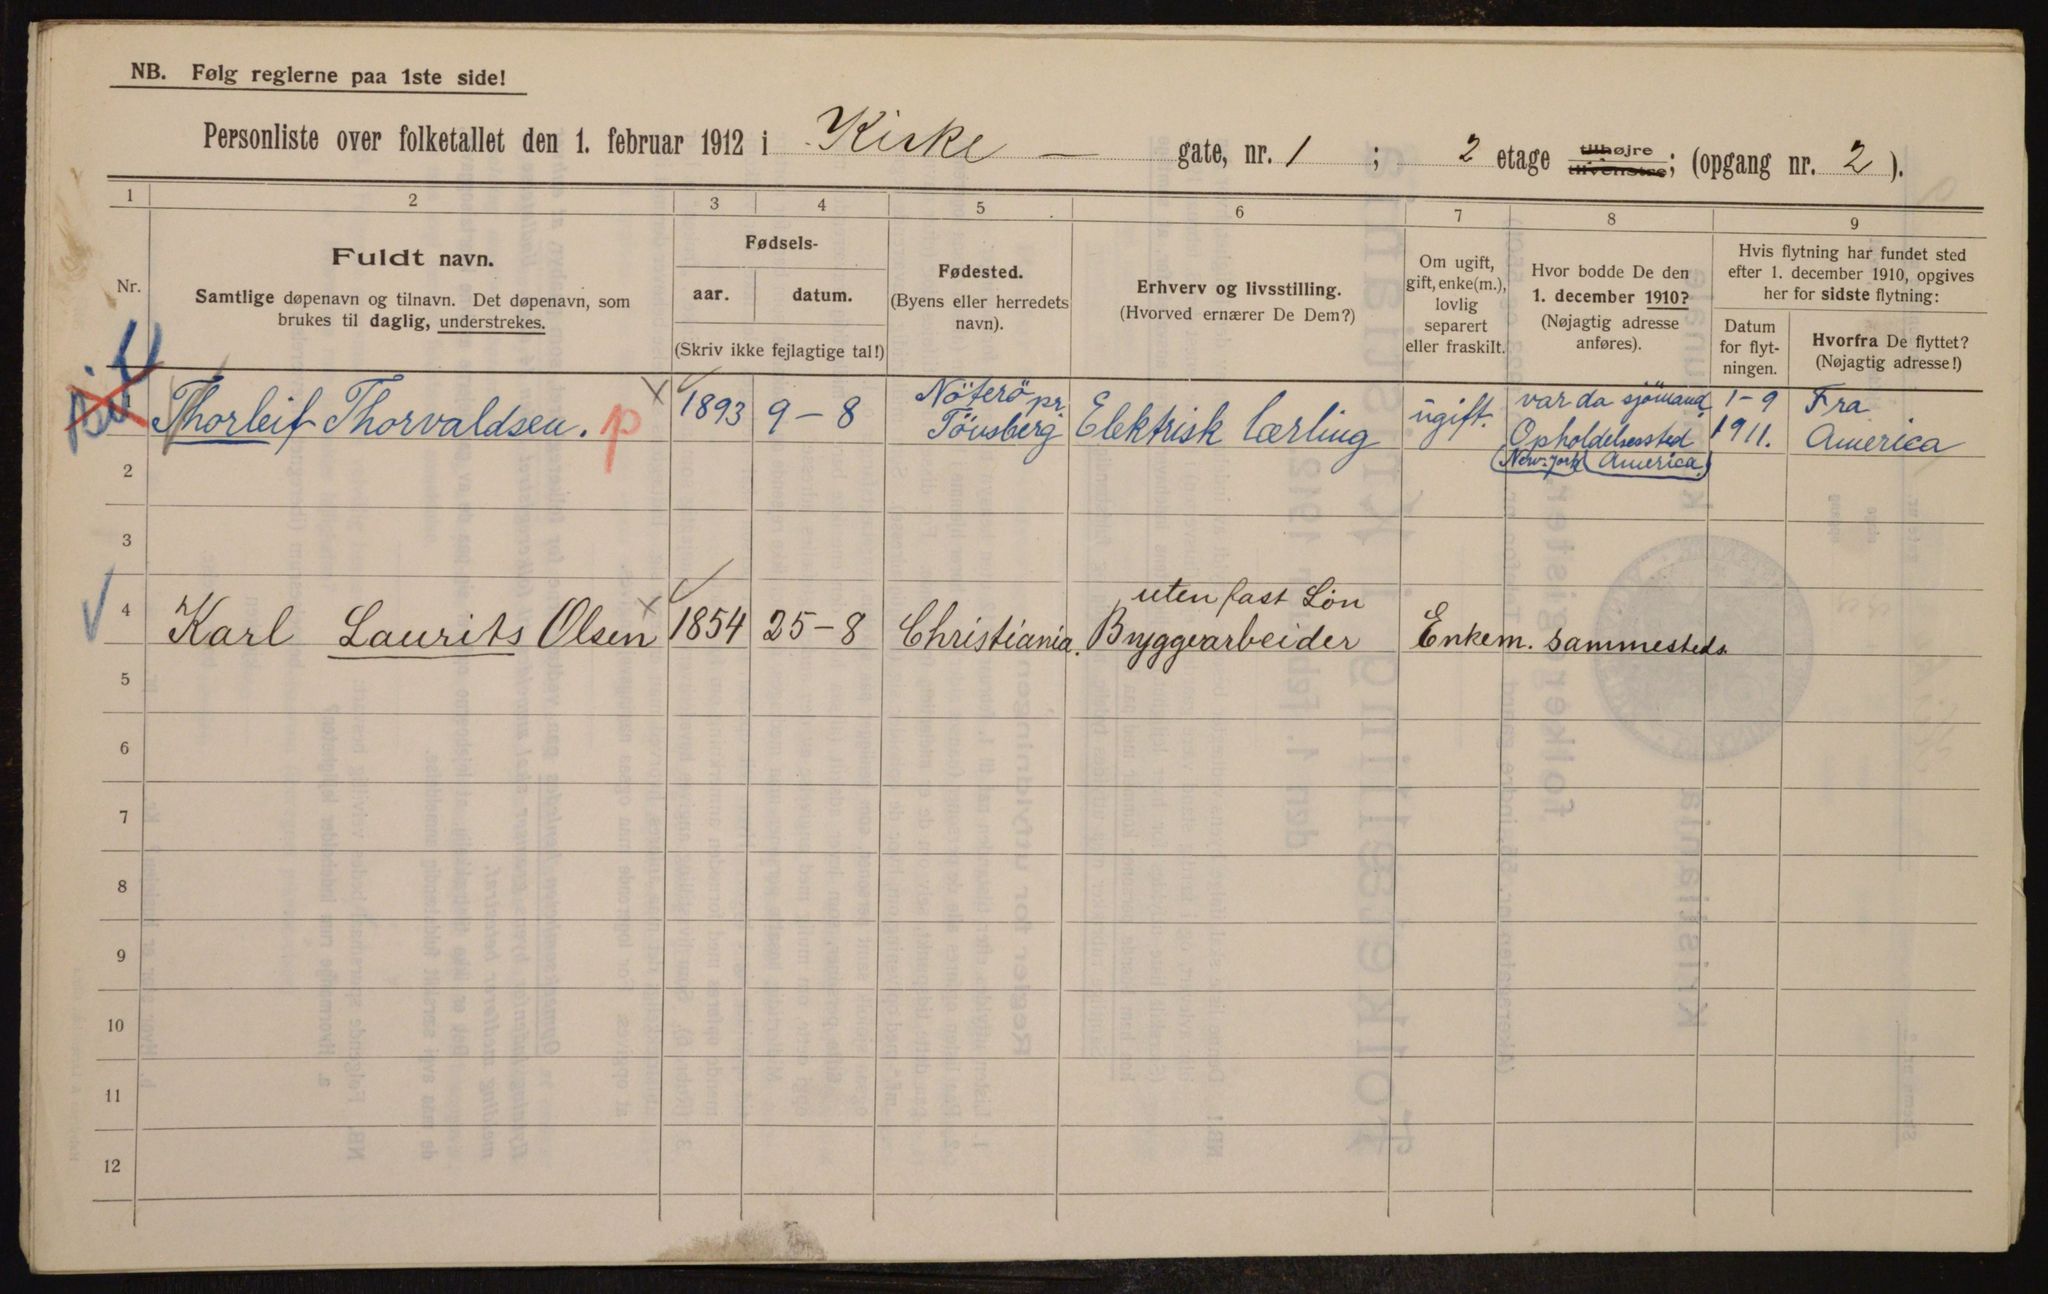 NB. Følg reglerne paa 1ste side!
Personliste over folketallet den 1. februar 1912 i Kirke — gate, nr. 1 ; 2 etage tilhøjre tilvenstre; (opgang nr. 2 ).
1 2 3 4 5 6 7 8 9
Nr.
Fuldt navn.
Samtlige døpenavn og tilnavn. Det døpenavn, som
brukes til daglig, understrekes.
Fødsels-
aar. datum.
(Skriv ikke fejlagtige tal!)
Fødested.
(Byens eller herredets
navn).
Erhverv og livsstilling.
(Hvorved ernærer De Dem?)
Om ugift,
gift, enke(m.),
lovlig
separert
eller fraskilt.
Hvor bodde De den
1. december 1910?
(Nøjagtig adresse
anføres).
Hvis flytning har fundet sted
efter 1. december 1910, opgives
her for sidste flytning:
Datum
for flyt-
ningen.
Hvorfra De flyttet?
(Nøjagtig adresse!)
Thorleif Thorvaldsen. p
1893 9-8
Nöterö pr.
Tönsberg
Elektrisk Lærling
ugift.
var da sjömand
Opholdelsessted
(New-York America.)
1-9
1911.
Fra
America
2
3
4 Karl Laurits Olsen 1854 25-8 Christiania.
uten fast Løn
Bryggearbeider
Enkem. sammesteds.
5
6
7
8
9
10
11
12